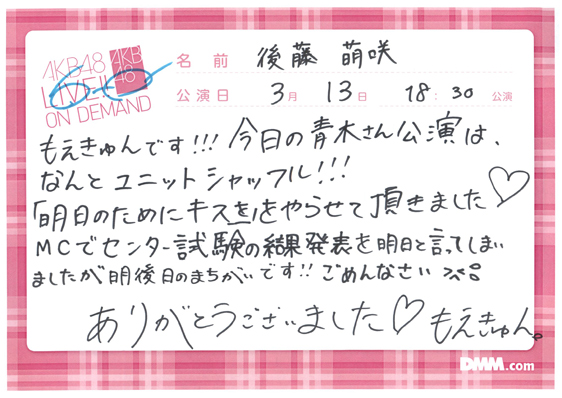 AKB48
LIVE!!
ON DEMAND
AKB
48
名前 後藤 萌咲
公演日 3月 13日 18:30 公演
もえきゅんです!!! 今日の青木さん公演は、
なんと ユニット シャッフル!!!
「明日のためにキスを」をやらせて頂きました♡
MCでセンター試験の結果発表を明日と言ってしまい
ましたが明後日のまちがいです!! ごめんなさい
ありがとうございました♡ もえきゅん。
DMM.com